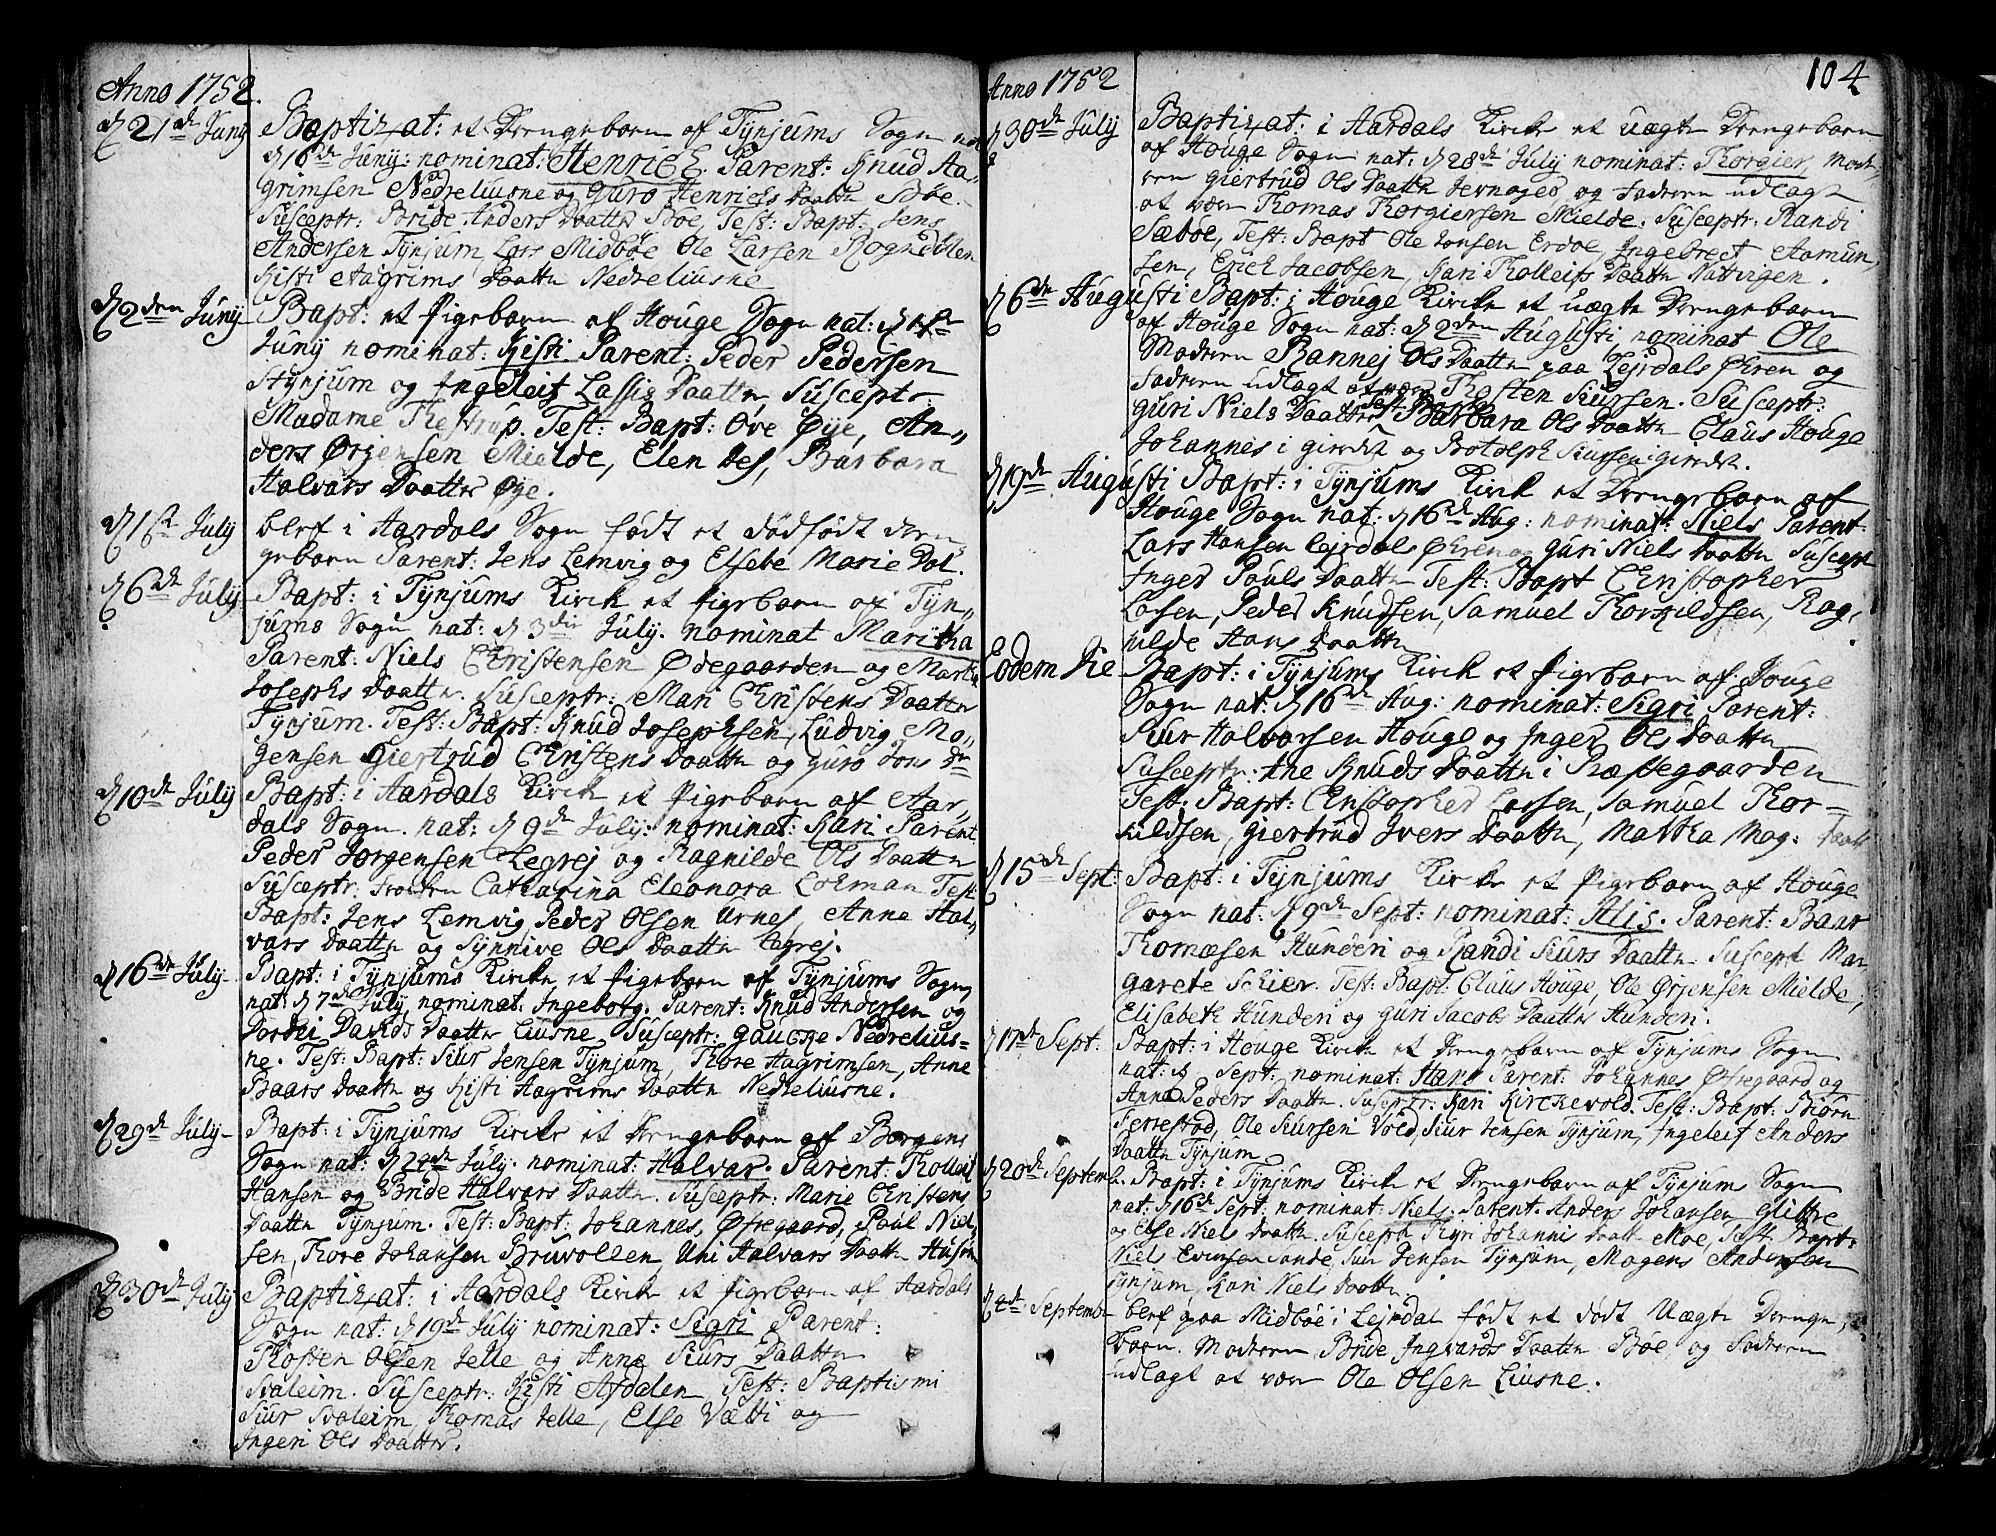 Anno 1752.
d 21de Juny Baptizat: et Drengebarn af Tynjums Sogn nat
d 16de Juny: nominat: Henrich. Parent: Knud Aa-
grimsen Nedreliusne og Guro Henrichs Daatter Bøe.
Susceptr. Bride Anders Daatter Bøe, Test: Bapt: Jens
Andersen Tynjum, Lars Midbøe Ole Larsen Rognedelen
Kisti Aagrims Daatter Nedreliusne
d 2den Juny Bapt: et Pigebarn af Houge Sogn nat: d 1ste
Juny nominat: Kisti Parent: Peder Pedersen
Stynjum og Ingeleif Lassis Daatter Susceptr:
Madame Thestrup. Test: Bapt: Ove Øye, An-
ders Ørjensen Mielde, Elen Des, Barbara
Halvars Daatter Øye.
d 1ste July blef i Aardals Sogn født et dødfødt dren-
gebarn Parent: Jens Lemvig og Elsebe Marie Dol.
d 6te July Bapt: i Tynjums Kirck et Pigebarn af Tyn-
jums Sogn nat: d 3die July. nominat Maritha
Parent: Niels Christensen Ødegaarden og Martha
Josephs Daatter. Susceptr: Mari Christens Daatter
Tynjum. Test: Bapt: Knud Josephsen, Ludvig Mo-
gensen Giertrud Christens Daatter og Guro Jons Dr
d 10de July Bapt: i Aardals Kirck et Pigebarn af Aar-
dals Sogn. nat: d 9de July: nominat: Kari Parent
Peder Jørgensen Legrej og Ragnilde Ols Daatter
Susceptr. Frøiken Catharina Eleonora Lohman Test
Bapt: Jens Lemvig, Peder Olsen Urnes, Anne Hal-
vars Daatter og Synnive Ols Daatter Legrej.
d 16de July Bapt: i Tynjums Kircke et Pigebarn af Tynjums Sogn
nat: d 7de July, nominat: Ingeborg. Parent: Knud Andersen og
Dordei Davids Daatter Liusne, Susceptr: Gauche Nedrelius-
ne. Test: Bapt: Siur Jensen Tynjum, Thore Aagrimsen, Anne
Baars Daatter og Kisti Aagrims Daatter Nedreliusne.
d 29de July Bapt: i Tynjums Kircke et Drengebarn af Borgens
Sogn nat: d 24de July. nominat: Halvar. Parent: Tholleif
Hansen og Bride Halvars Daatter. Susceptr: Marie Christens
Daatter Tynjum. Test: Bapt: Johannes, Øfregaard, Poul Niel-
sen, Thore Johansen Bruvollen, Uni Halvars Daatter Husum
d 30de July Baptizat: i Aardals Kircke et Pigebarn af Aardals
Sogn nat: d 19de July nominat: Sigri Parent:
Thosten Olsen Jelle og Anna Siurs Daatter
Svaleim. Susceptr: Kisti Afdalen Test: Baptismi
Siur Svaleim, Thomas Jelle, Else Vætti og
Ingeri Ols Daatter.
104
Anno 1752
d 30de July Baptizat: i Aardals Kircke et Uægte Drengebarn
af Houge Sogn nat: d 28de July nominat: Thorgier, Mode-
ren Giertrud Ols Daatter Jernages og Faderen udlagt
at være Thomas Thorgiersen Mielde. Susceptr: Randi
Sæbøe, Test: Bapt Ole Jonsen Erdøe, Ingebrect Aamun-
sen, Erich Jacobsen, Kari Tholleifs Daatter Nattvigen.
d 6te Augusti Bapt: i Houge Kircke et uægte Drengebarn
af Houge Sogn nat: d 2den Augusti, nominat Ole
Moderen Rannej Ols Daatter paa Lejrdals Øren og
Faderen udlagt at være Thosten Siursen. Susceptr:
Guri Niels Daatter Test: Bapt: Barbara Ols Daatter Claus Houge
Johannes i gierdet og Botolph Siursen i gierdet.
d 19de Augusti Bapt: i Tynjums Kirck et Drengebarn af
Houge Sogn nat: d 16de Aug: nominat: Niels Parent:
Lars Hansen Lejrdals Øren og Guri Niels Daatter Suscept
Inger Pouls Daatter Test: Bapt Christopher
Larsen, Peder Knudsen, Samuel Thorkildsen, Rag-
nilde Hans Daatter
Eodem Die Bapt: i Tynjums Kirck et Pigebarn af Houge
Sogn nat: d 16de Aug: nominat: Sigri Parent:
Siur Halvorsen Houge og Inger Ols Daatter
Susceptr: Ane Knuds Daatter i Præstegaarden
Test. Bapt: Christopher Larsen, Samuel Thor-
kildsen, Giertrud Ivers Daatter, Martha Mog: Daatt
d 15de Sept: Bapt: i Tynjums Kircke et Pigebarn af Houge
Sogn nat: d 9de Sept: nominat: Alis. Parent: Baar
Thomæsen Hunderi og Randi Siurs Daatter Suscept Mar-
garete Schier. Test: Bapt: Claus Houge, Ole Ørjensen Mielde,
Elisabeth Hunderi og Guri Jacobs Daatter Hunderi.
d 17de Sept: Bapt: i Houge Kircke et Drengebarn af Tynjums Sogn
nat: Sept: nominat: Hans Parent: Johannes Øfregaard og
Anna Peders Daatter. Susceptr: Kari Kirckevold. Test: Bapt: Biørn
Serrestad, Ole Siursen Vold, Siur Jensen Tynjum, Ingeleif Anders
Daatter Tynjum
d 20de Septem. Bapt: i Tynjums Kircke et Drengebarn af Tynjums Sogn
nat: d 16de Sept: nominat: Niels. Parent. Anders Johansen Glittre
og Else Niels Daatter. Susceptr Thyri Johannis Daatter Moe, Test: Bapt:
Niels Evensen Sande, Siur Jensen Tynjum, Mogens Andersen
Tynjum, Kari Niels Daatter
d 4de Septemb- blef paa Midbøe i Lejrdal født et dødt Uægte Drenge-
barn. Moderen Bride Ingvards Daatter Bøe, og Faderen
udlagt at være Ole Olsen Liusne.